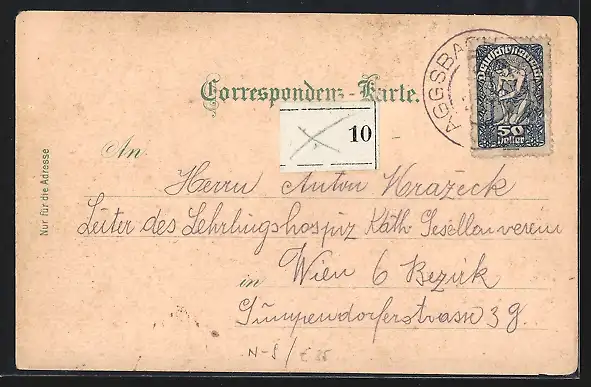 Correspondenz-Karte.
AGGSBACH
Deutschösterreich
50
Heller
10
An
Nur für die Adresse
Herrn Anton Kražeck
Leiter des Lehrlingshospiz Kath Gesellenverein
in Wien 6 Bezirk
Gumpendorferstrasse 39.
N-8/ € 25